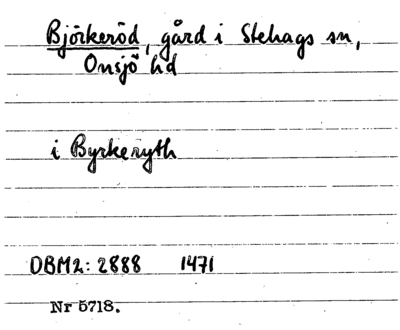 Björkeröd, gård i Stehags sn,
Onsjö hd
i Byrkeryth
DBM2: 2888 1471
Nr 5718.